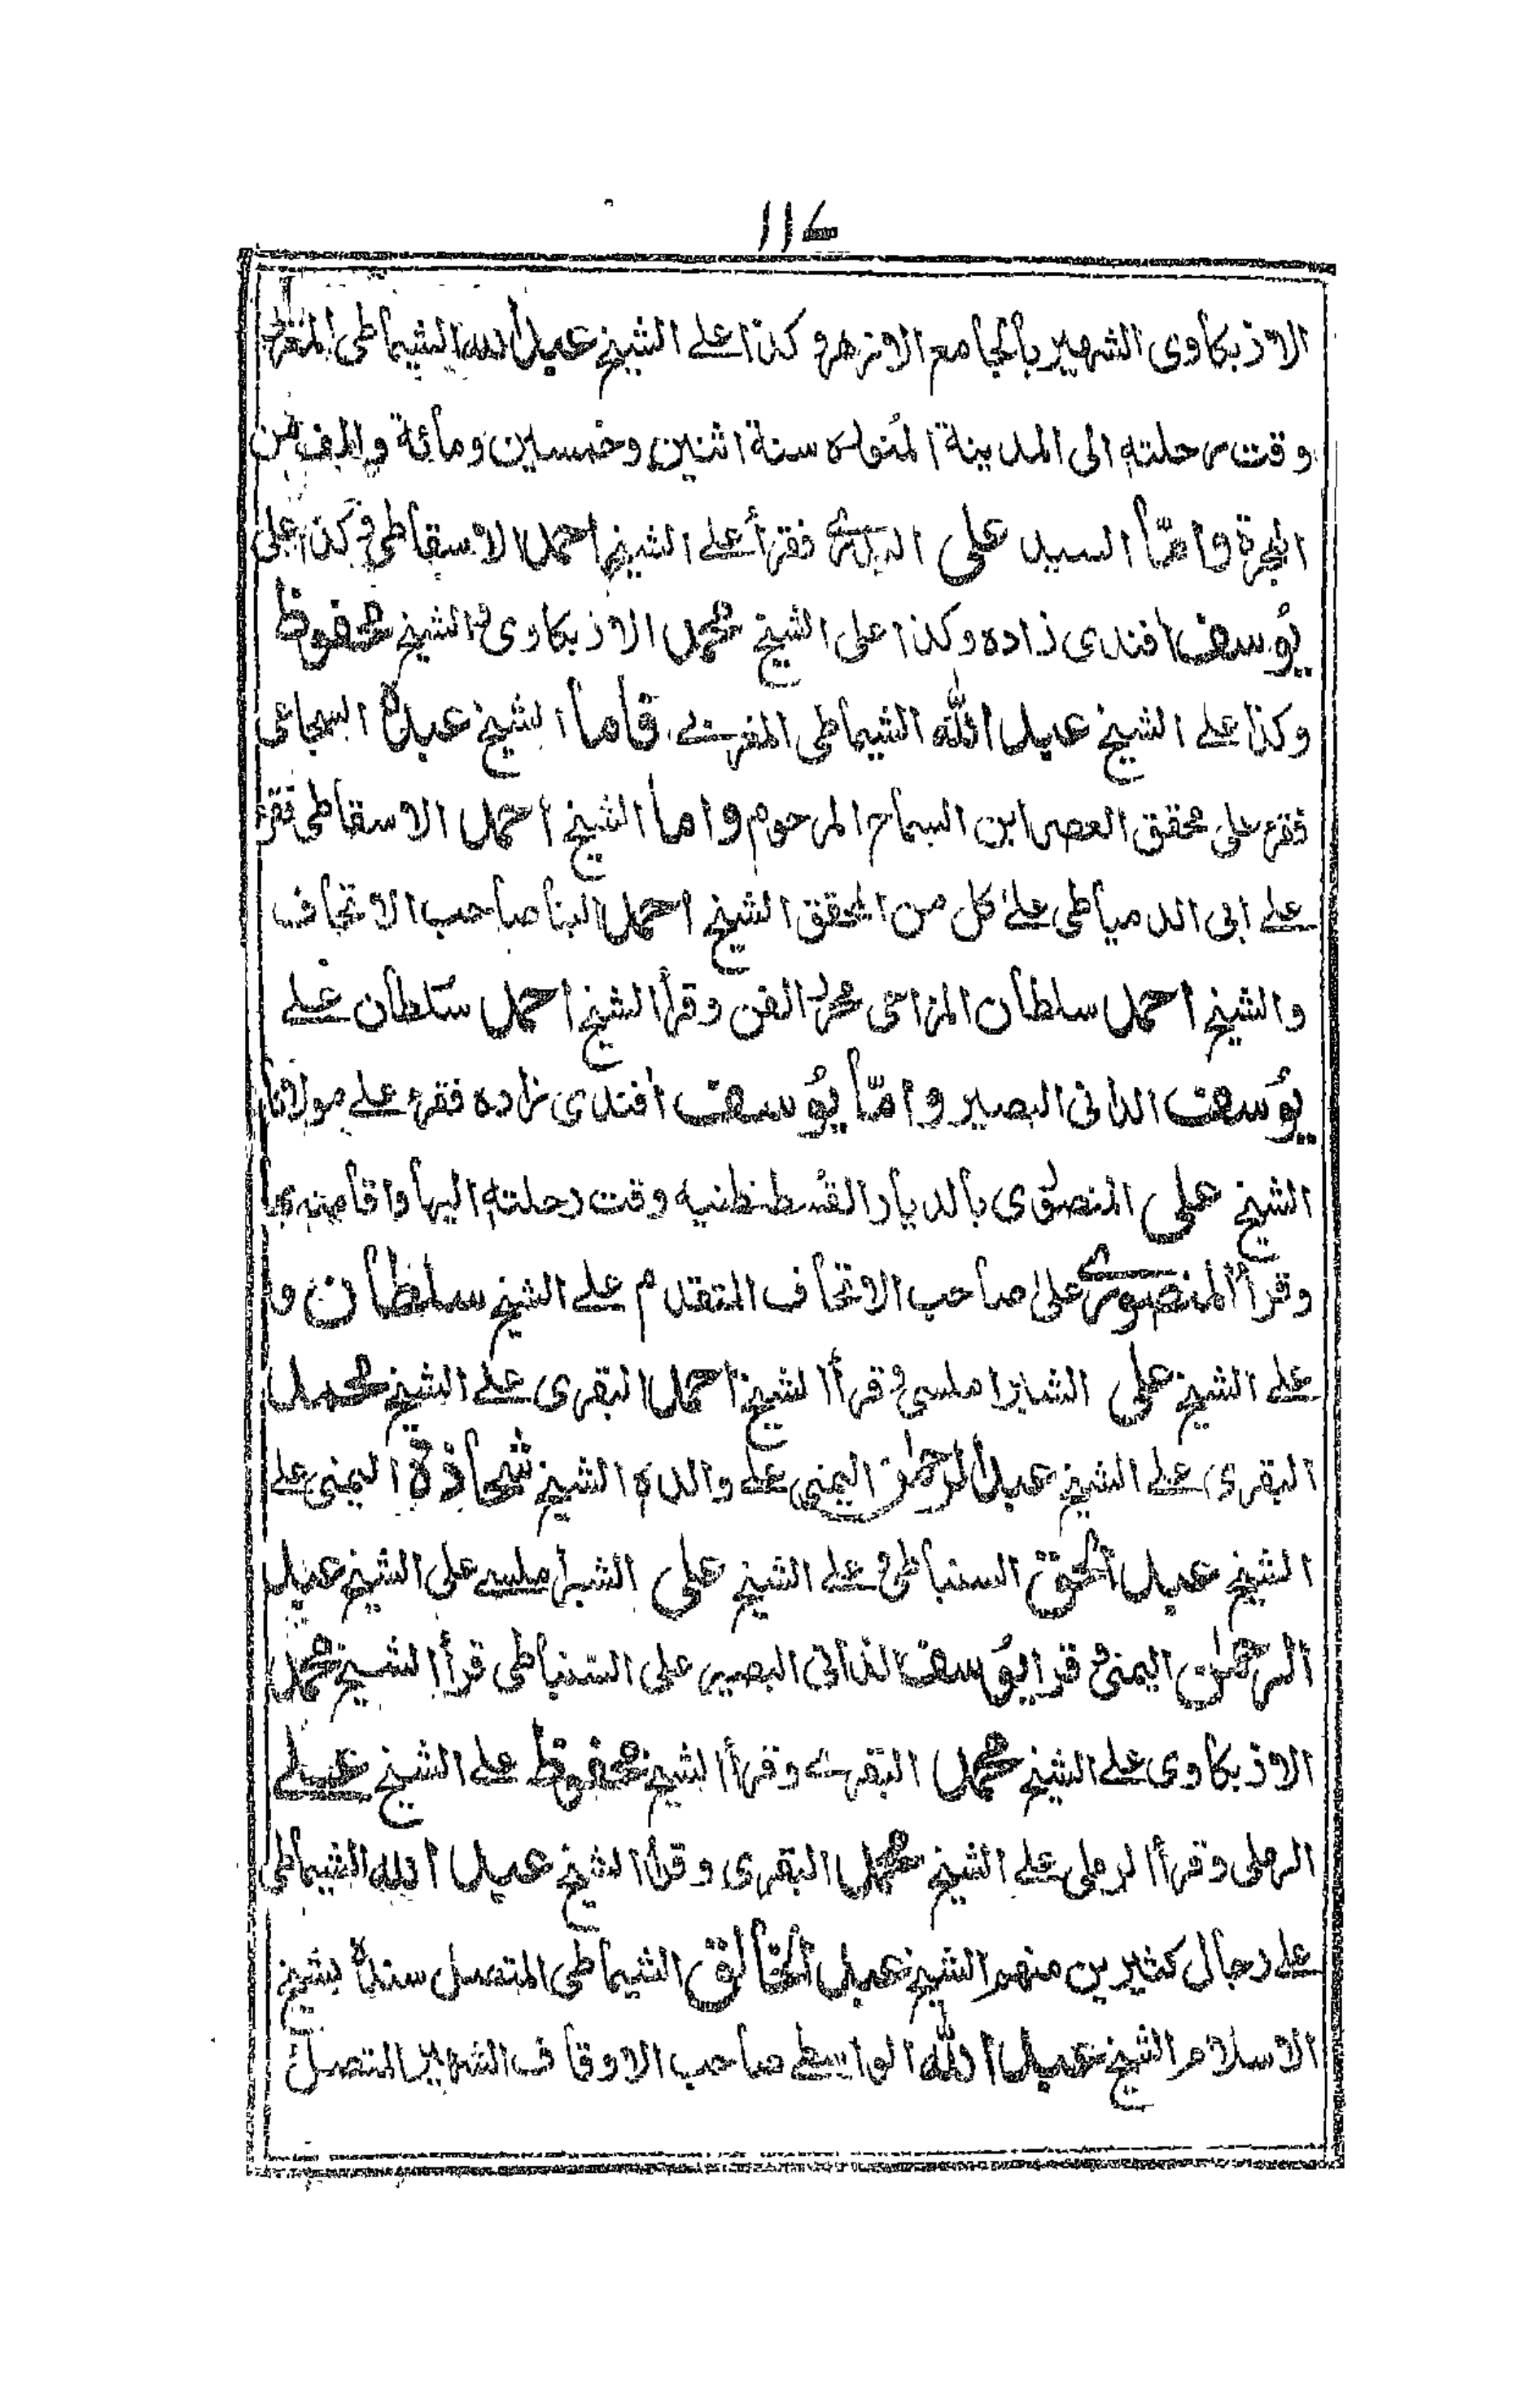 ۱۱۷
الاذبكاوى الشهير بالجامع الازهر وكذا على الشيخ عبد الله الشيماطى المغربى
وقت رحلته الى المدينة المنوره سنة اثنين وخمسين ومائة والف من
الهجرة وامّا السيد على البدرى فقرأ على الشيخ احمد الاسقاطى وكذا على
يُوسف افندى زاده وكذا على الشيخ محمد الاذبكاوى والشيخ محفوظ
وكذا على الشيخ عبد الله الشيماطى المغربے فاما الشيخ عبده السجاعى
فقرء على محقق العصر ابن السماح المرحوم واما الشيخ احمد الاسقاطى فقرء
على ابى الدمياطى على كل من المحقق الشيخ احمد البنا صاحب الاتحاف
والشيخ احمد سلطان المزاحى محرر الفن وقرأ الشيخ احمد سلطان على
يُوسف الدانى البصير وامّا يُوسف افندى زاده فقرء على مولانا
الشيخ على المنصورى بالديار القسطنطنيه وقت رحلته اليها واقامته بها
وقرأ المنصورے على صاحب الاتحاف المتقدم على الشيخ سلطان و
على الشيخ على الشبراملسى وقرأ الشيخ احمد البقرى على الشيخ محمد
البقرى على الشيخ عبد الرحمٰن اليمنى على والده الشيخ شحاذة اليمنى على
الشيخ عبد الحق السنباطى وعلى الشيخ على الشبراملسے على الشيخ عبد
الرحمٰن اليمنى وقرا يوُسف الدانى البصير على السنباطى قرأ الشيخ محمد
الاذبكاوى على الشيخ محمد البقرے وقرأ الشيخ محفوظ على الشيخ على
الرملى وقرأ الرملى على الشيخ محمد البقرى وقرأ الشيخ عبد الله الشيماطى
على رجال كثيرين منهم الشيخ عبد الخالق الشيماطى المتصل سنده بشيخ
الاسلام الشيخ عبد الله الواسطے صاحب الاوقاف الشهير المتصل